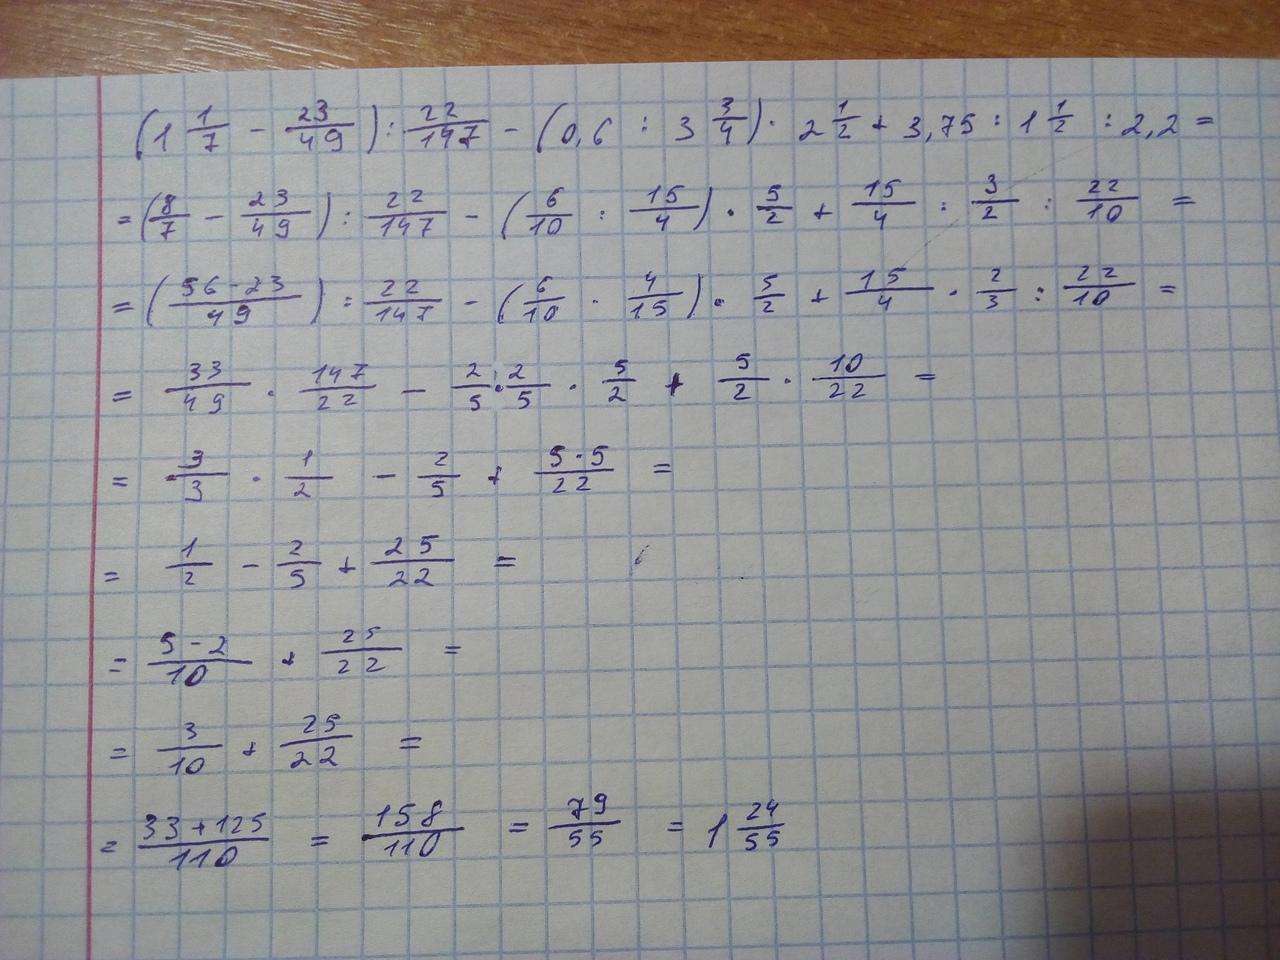 (1 1/7 - 23/49) : 22/147 - (0,6 : 3 3/4) · 2 1/2 + 3,75 : 1 1/2 : 2,2 =
= (8/7 - 23/49) : 22/147 - (6/10 : 15/4) · 5/2 + 15/4 : 3/2 : 22/10 =
= (56-23/49) : 22/147 - (6/10 · 4/15) · 5/2 + 15/4 · 2/3 : 22/10 =
= 33/49 · 147/22 - 2/5 · 2/5 · 5/2 + 5/2 · 10/22 =
= 3/3 · 1/2 - 2/5 + 5·5/22 =
= 1/2 - 2/5 + 25/22 =
= 5-2/10 + 25/22 =
= 3/10 + 25/22 =
= 33+125/110 = 158/110 = 79/55 = 1 24/55